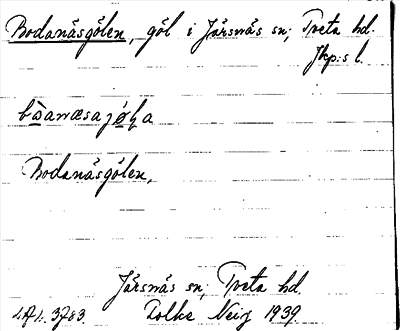 Bodanäsgölen, göl i Järsnäs sn; Tveta hd.
Jkp:s l.
Bodanäsgölen,
Järsnäs sn; Tveta hd.
Folke Neij 1939.